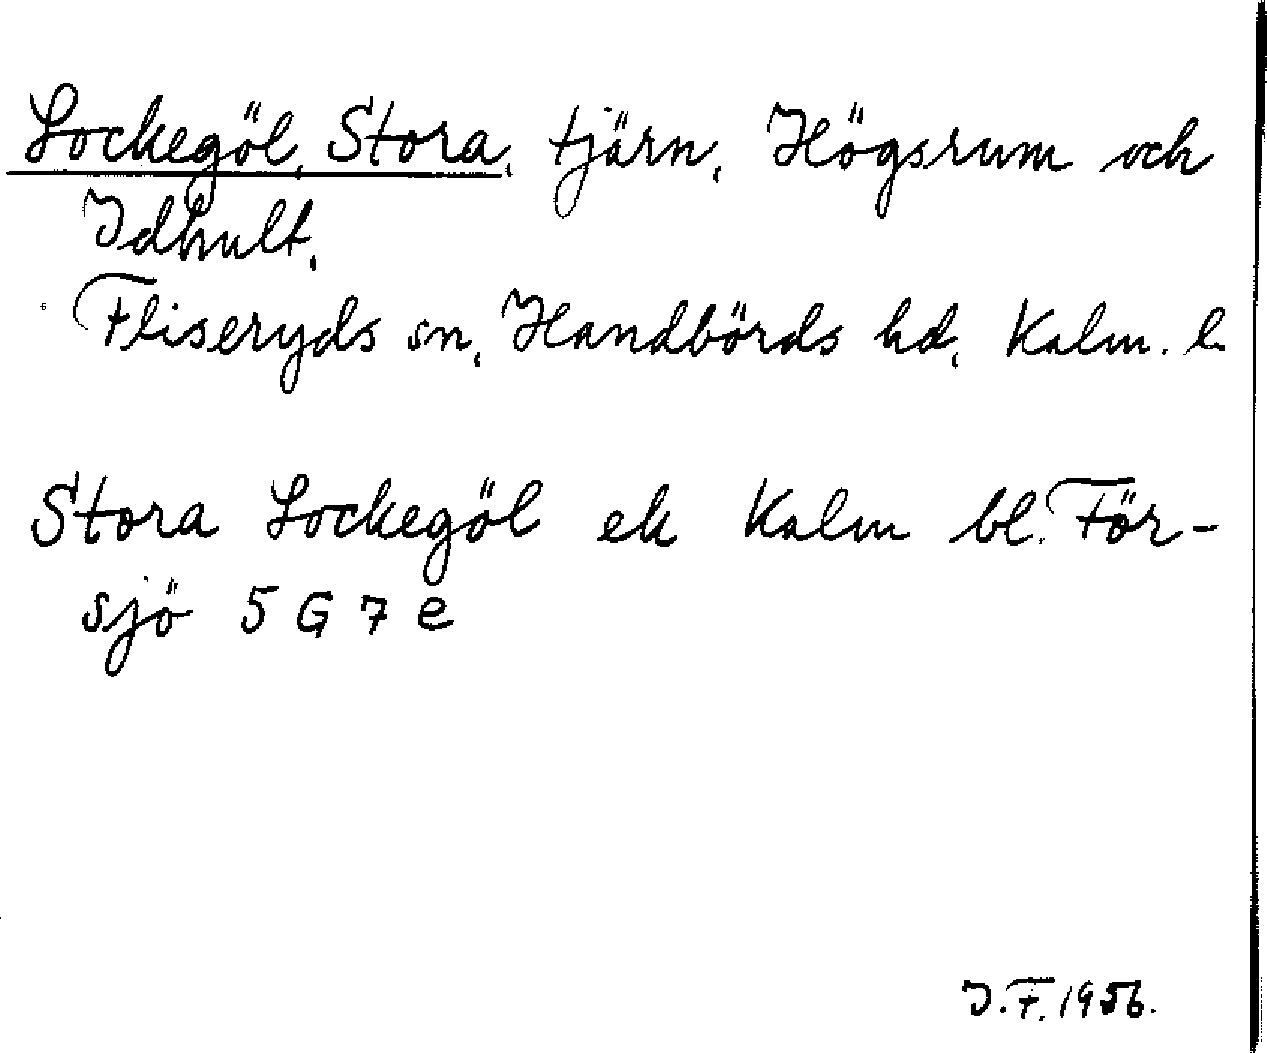 Lockegöl, Stora, tjärn, Högsrum och
Idhult,
Fliseryds sn, Handbörds hd, Kalm. l.
Stora Lockegöl ek Kalm bl. För-
sjö 5 G 7 e
J.F. 1956.